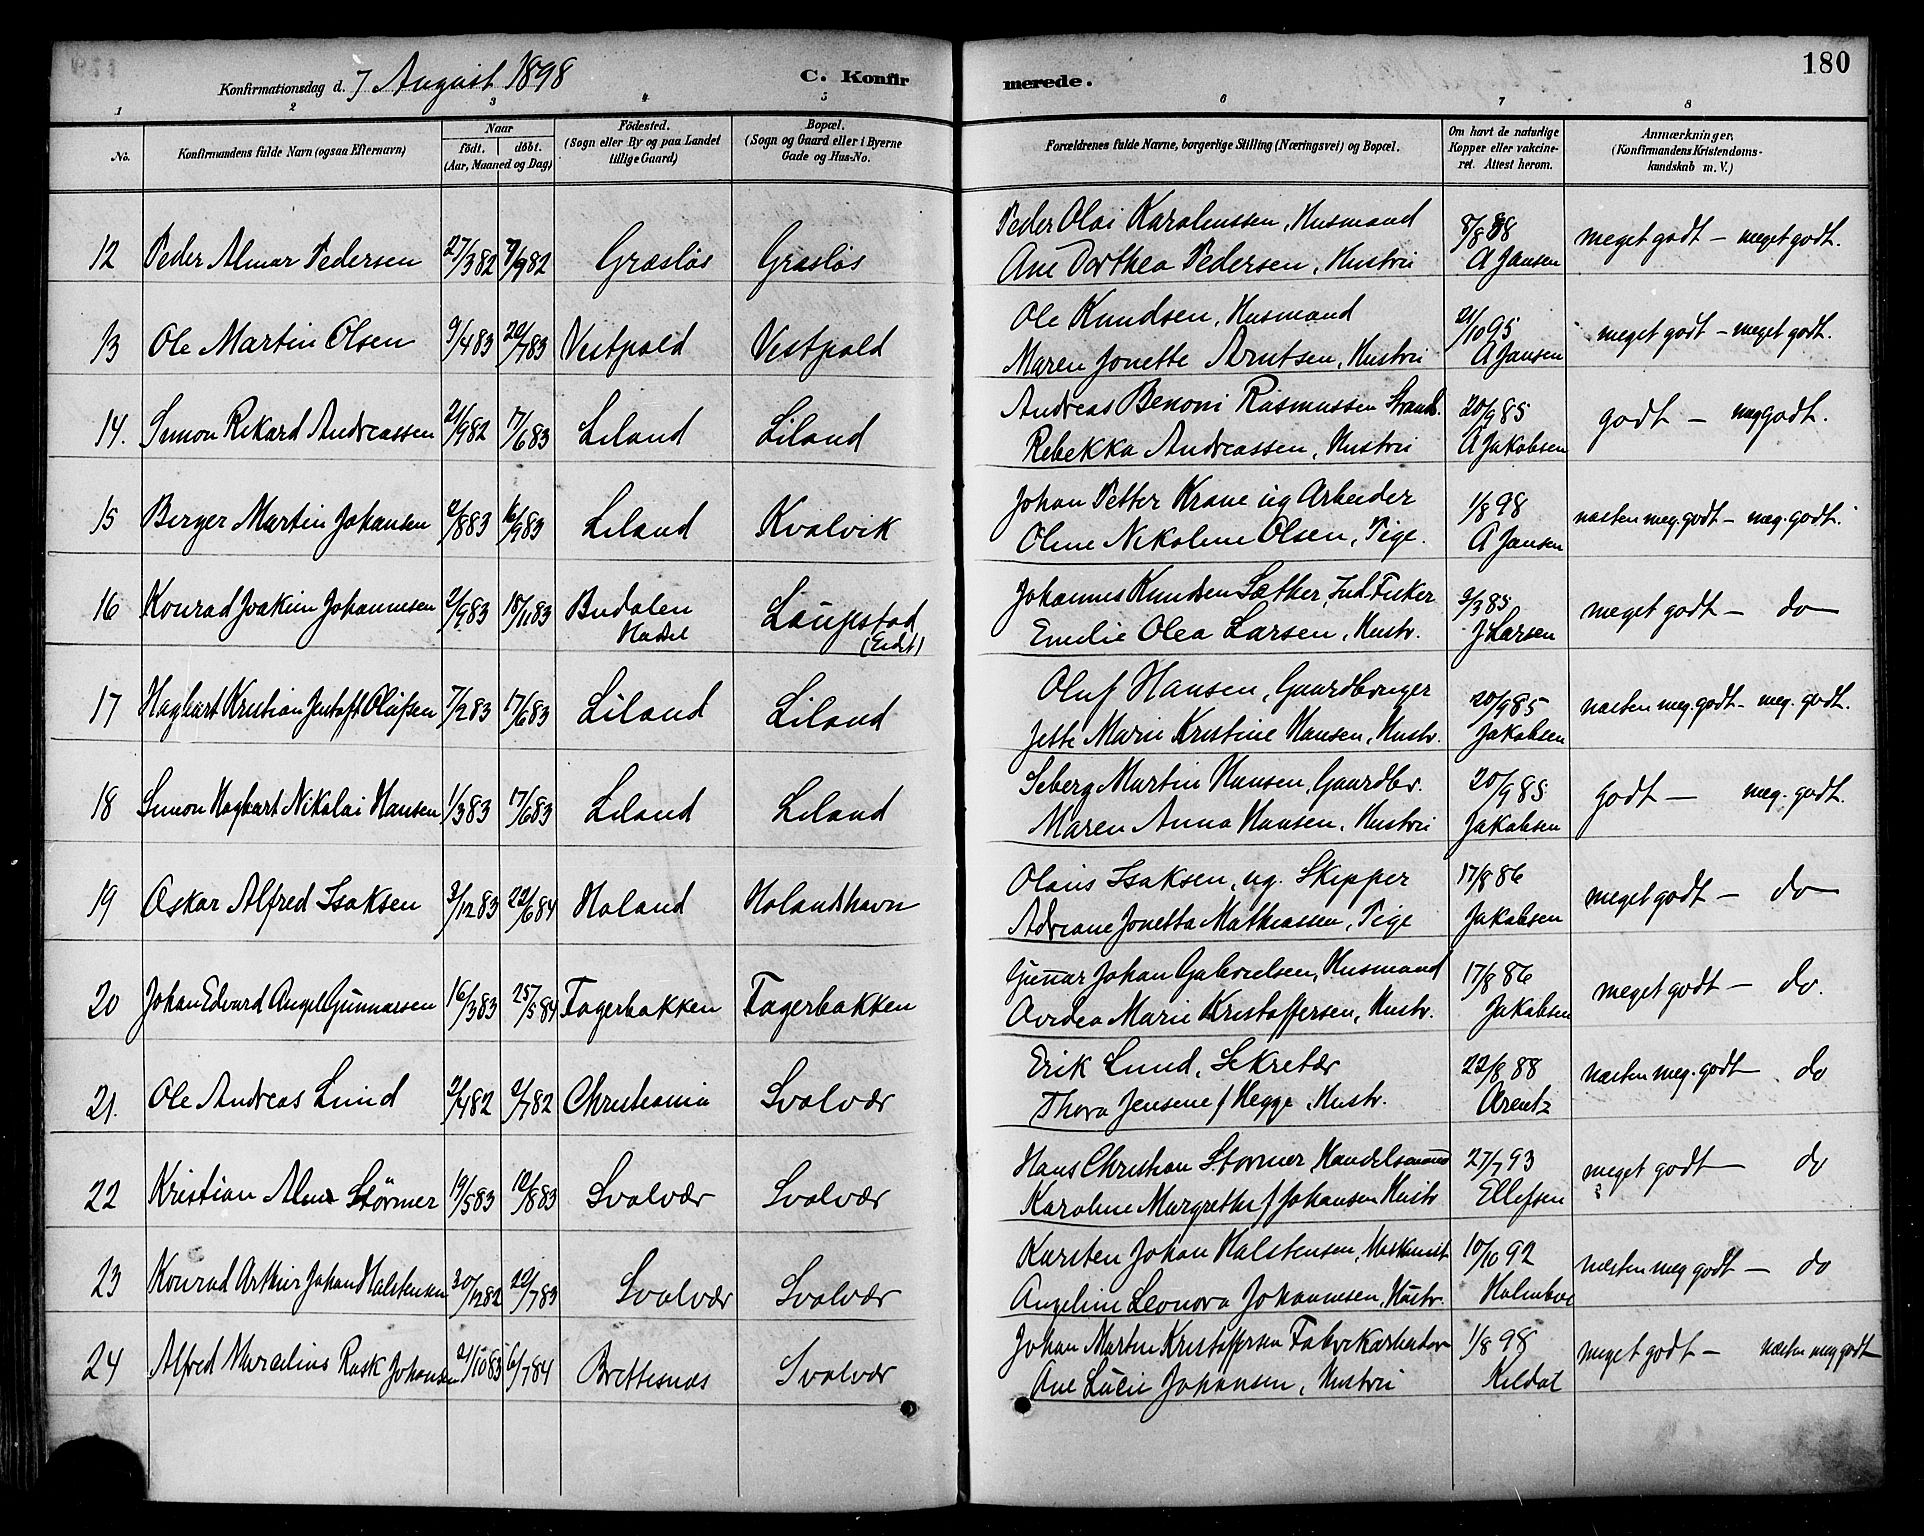 180
Konfirmationsdag d. 7 August 1898
C. Konfirmerede.
1 2 3 4 5 6 7 8
No. Konfirmandens fulde Navn (ogsaa Efternavn) Naar født. døbt. (Aar, Maaned og Dag) Födested. (Sogn eller By og paa Landet tillige Gaard) Bopæl. (Sogn og Gaard eller i Byerne Gade og Hus-No. Forældrenes fulde Navne, borgerlige Stilling (Næringsvei) og Bopæl. Om havt de naturlige Kopper eller vakcineret. Attest herom. Anmærkninger. (Konfirmandens Kristendomskundskab m. V.)
12 Peder Almar Pedersen 27/3 82 7/9 82 Græsløs Græsløs Peder Olai Karolinssen, Husmand 8/8 88 meget godt – meget godt.
Ane Dorthea Pedersen, Hustru A Jansen
13 Ole Martin Olsen 9/4 83 20/7 83 Vestpold Vestpold Ole Knudsen, Husmand 21/10 95 meget godt – meget godt.
Maren Jonette Arntsen, Hustru A Jansen
14. Simon Rikard Andreassen 21/9 82 17/6 83 Liland Liland Andreas Benoni Rasmussen Strands. 20/9 85 godt – meg godt.
Rebekka Andreassen, Hustru A Jakobsen
15 Berger Martin Johansen 2/8 83 16/9 83 Liland Kvalvik Johan Petter Krane ug Arbeider 1/8 98 næsten meg. godt – meg. godt.
Oline Nikoline Olsen, Pige. A Jansen
16 Konrad Joakim Johannesen 2/9 83 18/11 83 Budalen Hadsel Laupstad (Eidet) Johannes Knudsen Sæther, Ind Fisker 3/3 85 meget godt – do
Emilie Olea Larsen, Hustr. J Larsen
17 Hagbart Kristian Jentoft Olufsen 7/2 83 17/6 83 Liland Liland Oluf Hansen, Gaardbruger 20/9 85 næsten meg. godt – meg. godt.
Jette Marie Kristine Hansen, Hustr. Jakobsen
18 Simon Hagbart Nikolai Hansen 1/3 83 17/6 83 Liland Liland Seberg Martin Hansen, Gaardbr. 20/9 85 godt – meg. godt.
Maren Anna Hansen, Hustru Jakobsen
19 Oskar Alfred Isaksen 3/12 83 22/6 84 Holand Holandshavn Olaus Isaksen, ug. Skipper 17/8 86 meget godt – do
Adriane Jonetta Mathiassen, Pige Jakobsen
20 Johan Edvard Angel Gunnarsen 16/3 83 25/5 84 Fagerbakken Fagerbakken Gunnar Johan Gabrielsen, Husmand 17/8 86 meget godt – do.
Ovidea Marie Kristoffersen, Hustr. Jakobsen
21. Ole Andreas Lund 2/4 82 2/7 82 Christiania Svolvær Erik Lund, Sekretær 22/8 88 næsten meg. godt – do
Thora Jensene f Hegge, Hustr. Arentz
22 Kristian Almar Størmer 19/5 83 12/8 83 Svolvær Svolvær Hans Christian Størmer Handelsmand 27/7 93 meget godt – do
Karoline Margrethe f Johansen Hustr Ellefsen
23 Konrad Arthur Johan Halstensen 30/12 82 20/7 83 Svolvær Svolvær Karsten Johan Halstensen, Maskinist 10/10 92 næsten meg godt – do
Angeline Leonora Johannesen, Hustr. Holmboe
24 Alfred Marcelius Rask Johansen 2/10 83 6/7 84 Brettesnæs Svolvær Johan Martin Kristoffersen Fabrikarbeider 1/8 98 meget godt – næsten meg godt
Ane Lucie Johansen, Hustru Kildal